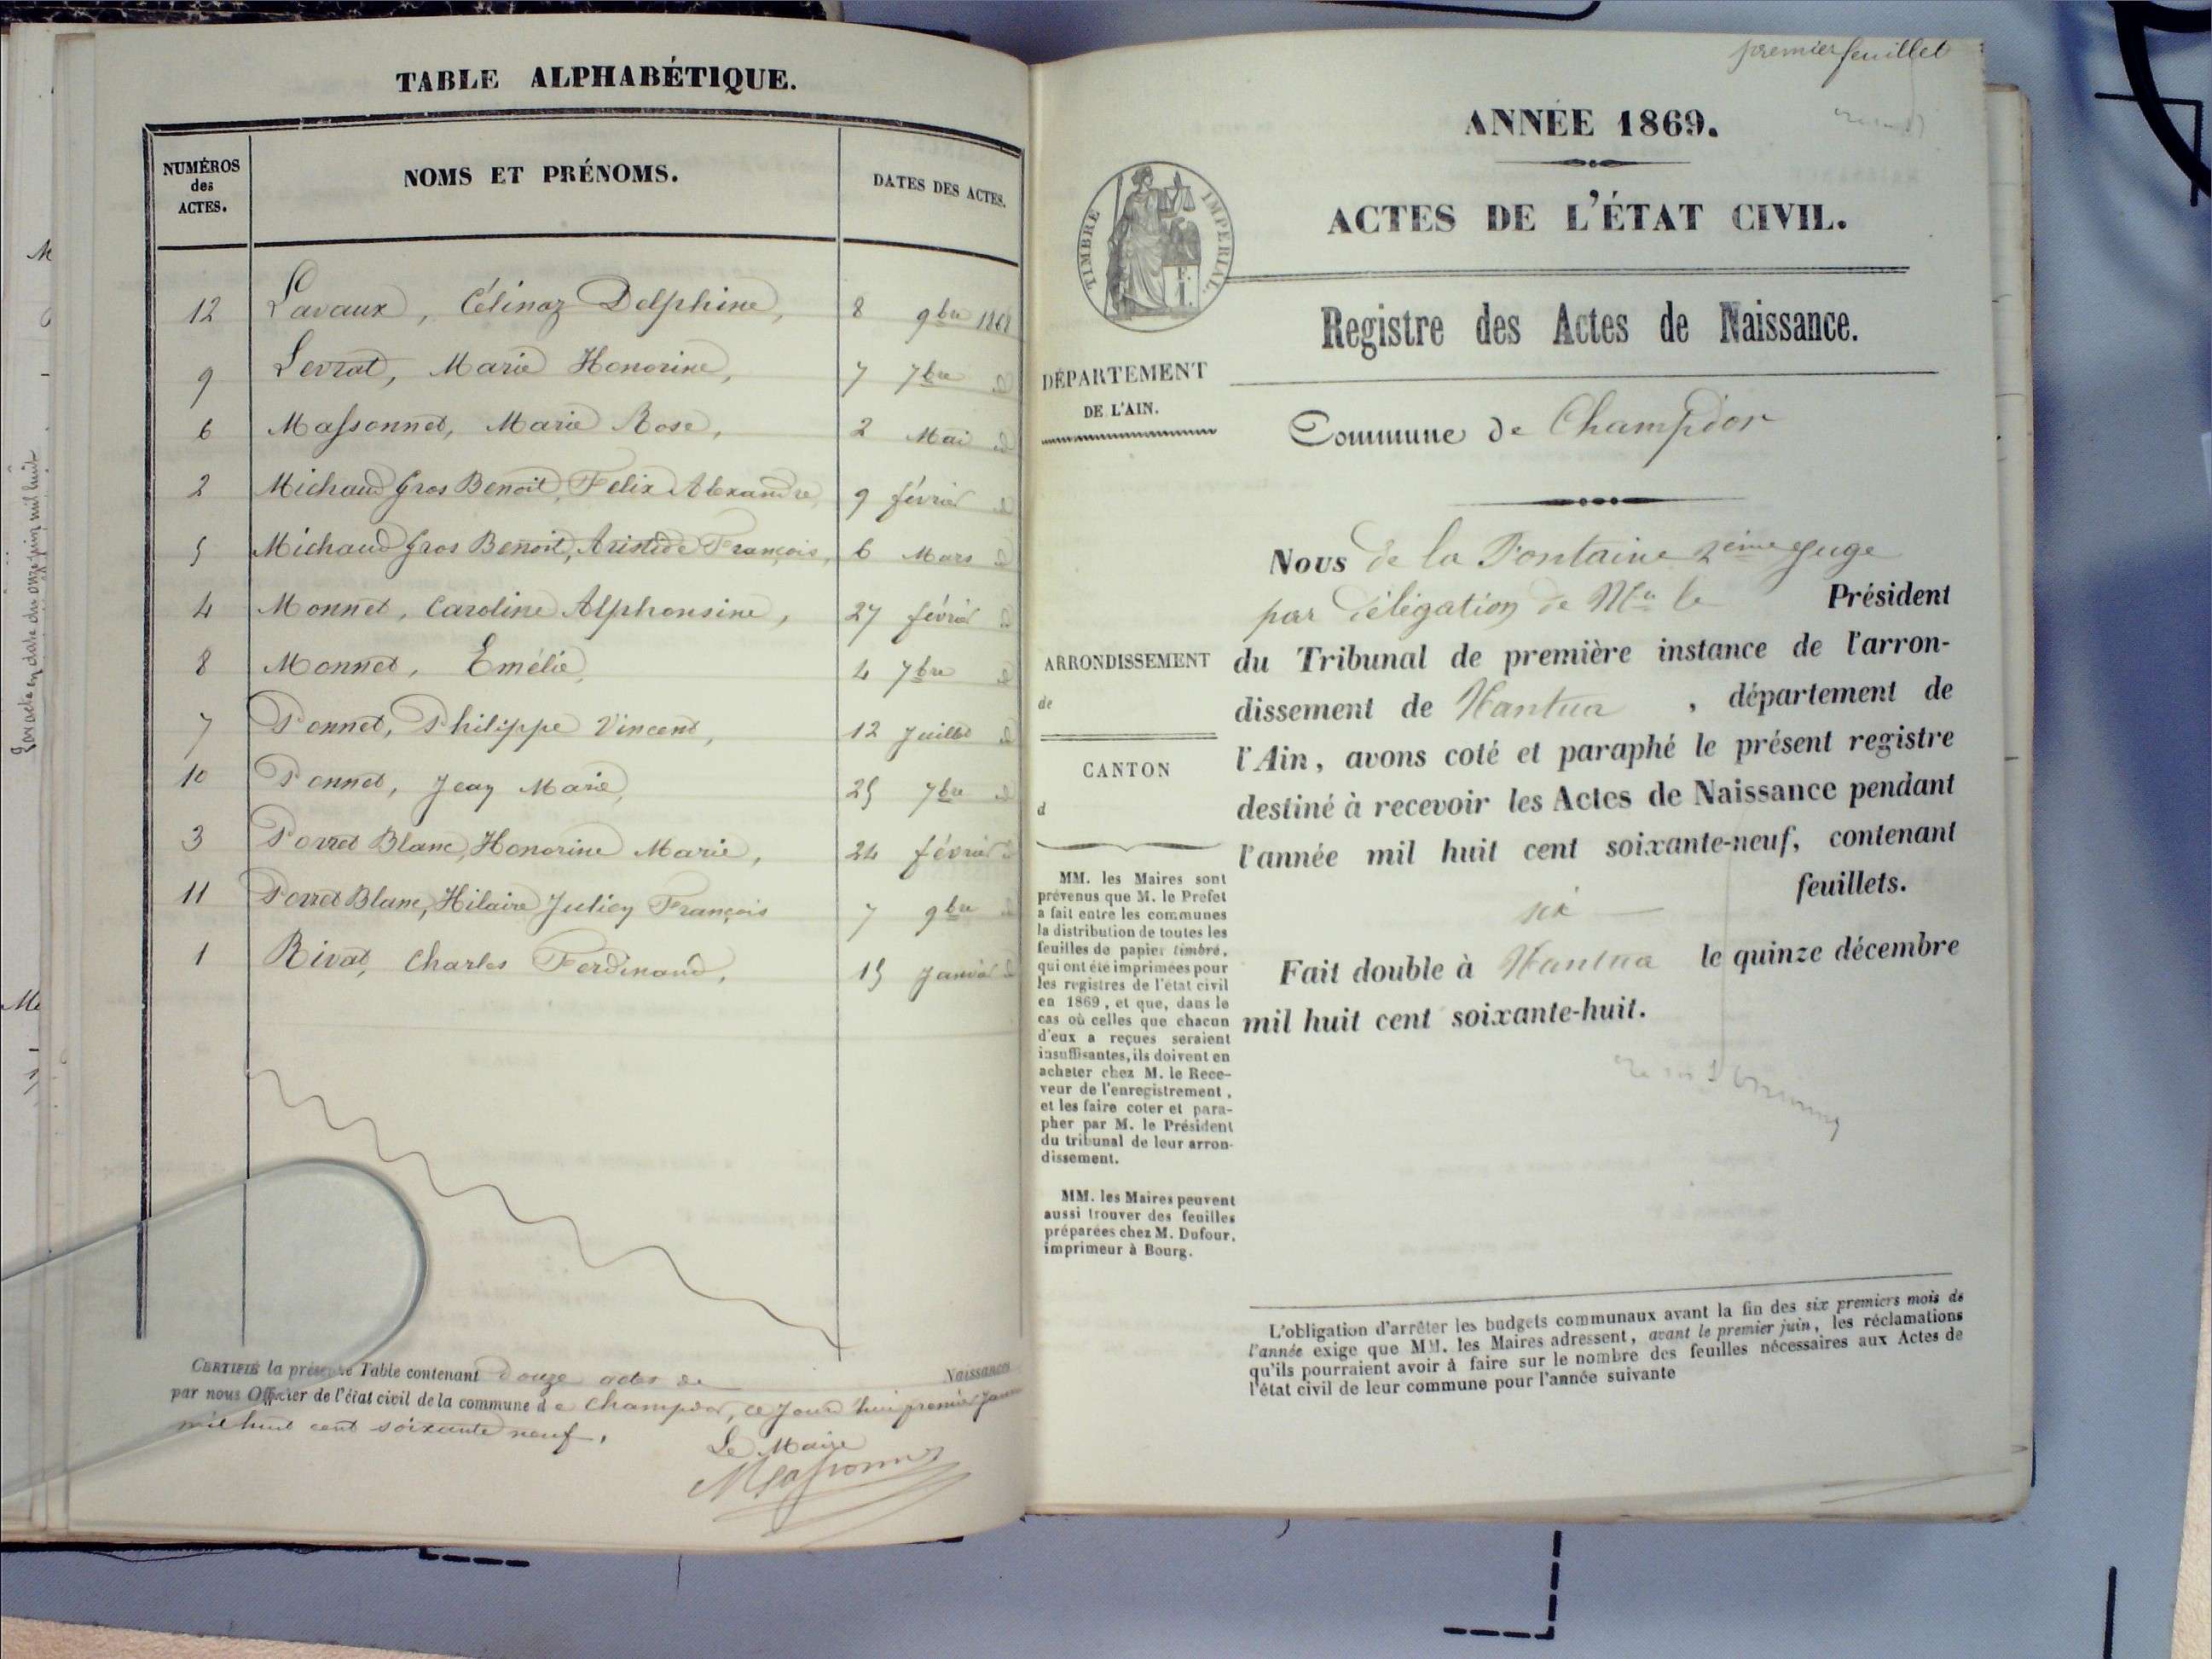 TABLE ALPHABÉTIQUE.
NUMÉROS
des
ACTES.
NOMS ET PRÉNOMS.
DATES DES ACTES.
12 Lavaux, Célinaz Delphine, 8 9bre 1868
9 Levrat, Marie Honorine, 7 7bre id
6 Massonnet, Marie Rose, 2 Mai id
2 Michaud Gros Benoit, Felix Alexandre 9 février id
5 Michaud Gros Benoit, Aristide François, 6 Mars id
4 Monnet, Caroline Alphonsine, 27 février id
8 Monnet, Emélie, 4 7bre id
7 Ponnet, Philippe Vincent, 12 Juillet id
10 Ponnet, Jean Marie, 25 7bre id
3 Porret Blanc, Honorine Marie, 24 février id
11 Porret Blanc, Hilaire Julien François 7 9bre id
1 Rivat, Charles Ferdinand, 15 Janvier id
CERTIFIÉ la présente Table contenant Douze actes de Naissances
par nous Officier de l'état civil de la commune de Champdor, ce jourd'hui premier Janvier
mil huit cent soixante neuf,
Le Maire
premier feuillet
ANNÉE 1869.
TIMBRE IMPÉRIAL
ACTES DE L'ÉTAT CIVIL.
Registre des Actes de Naissance.
DÉPARTEMENT
DE L'AIN.
Commune de Champdor
Nous de la Fontaine 2ème Juge
par délégation de Mr le Président
du Tribunal de première instance de l'arron-
dissement de Nantua, département de
l'Ain, avons coté et paraphé le présent registre
destiné à recevoir les Actes de Naissance pendant
l'année mil huit cent soixante-neuf, contenant
six feuillets.
Fait double à Nantua le quinze décembre
mil huit cent soixante-huit.
ARRONDISSEMENT
de
CANTON
d
MM. les Maires sont
prévenus que M. le Préfet
a fait entre les communes
la distribution de toutes les
feuilles de papier timbré,
qui ont été imprimées pour
les registres de l'état civil
en 1869, et que, dans le
cas où celles que chacun
d'eux a reçues seraient
insuffisantes, ils doivent en
acheter chez M. le Rece-
veur de l'enregistrement,
et les faire coter et para-
pher par M. le Président
du tribunal de leur arron-
dissement.
MM. les Maires peuvent
aussi trouver des feuilles
préparées chez M. Dufour,
imprimeur à Bourg.
L'obligation d'arrêter les budgets communaux avant la fin des six premiers mois de
l'année exige que MM. les Maires adressent, avant le premier juin, les réclamations
qu'ils pourraient avoir à faire sur le nombre des feuilles nécessaires aux Actes de
l'état civil de leur commune pour l'année suivante